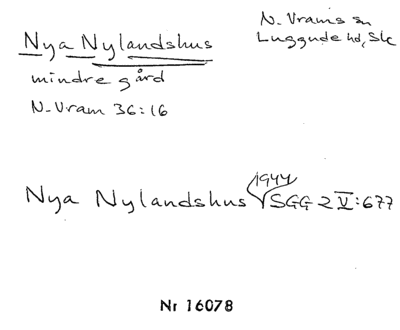 Nya Nylandshus
mindre gård
N. Vram 36:16
N. Vrams sn
Luggude hd, Sk
Nya Nylandshus 1944 SGG 2 V:677
Nr 16078